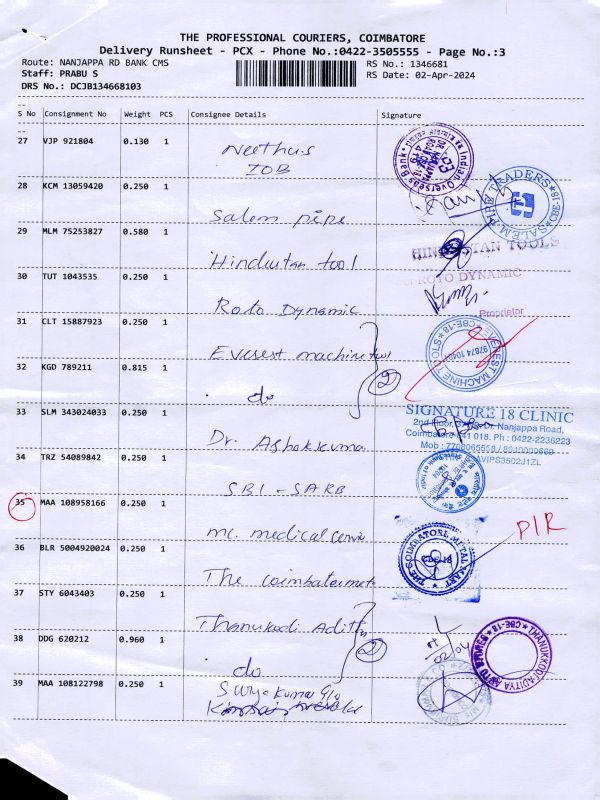 THE PROFESSIONAL COURIERS, COIMBATORE
Delivery Runsheet - PCX - Phone No.:0422-3505555 - Page No.:3
Route: NANJAPPA RD BANK CMS
RS No.: 1346681
Staff: PRABU S
RS Date: 02-Apr-2024
DRS No.: DCJB134668103
S No Consignment No Weight PCS Consignee Details Signature
27 VJP 921804 0.130 1 Neethu's
IOB
Indian Overseas Bank
28 KCM 13059420 0.250 1 Salem pipe
SALEM PIPE TRADERS CBE-18
29 MLM 75253827 0.580 1 Hindustan tool
HINDUSTAN TOOLS
30 TUT 1043535 0.250 1 Roto Dynamic
ROTO DYNAMIC
Proprietor
31 CLT 15887923 0.250 1 Everest machine
EVEREST MACHINE CBE-18
32 KGD 789211 0.815 1 do
2
33 SLM 343024033 0.250 1 Dr. Ashokkumar
SIGNATURE 18 CLINIC
2nd Floor, Dr. Nanjappa Road,
Coimbatore 641 018. Ph : 0422-2236223
Mob :
34 TRZ 54089842 0.250 1 SBI - SARB
35 MAA 108958166 0.250 1 mc. medical
PIR
36 BLR 5004920024 0.250 1 The
THE COIMBATORE METAL MART
CBE-18
37 STY 6043403 0.250 1 Thanukodi Adithy
38 DDG 620212 0.960 1 do
2
02/04
THANUKKODI ADITYA AUTO STORES CBE-18
39 MAA 108122798 0.250 1 Surya Kumar